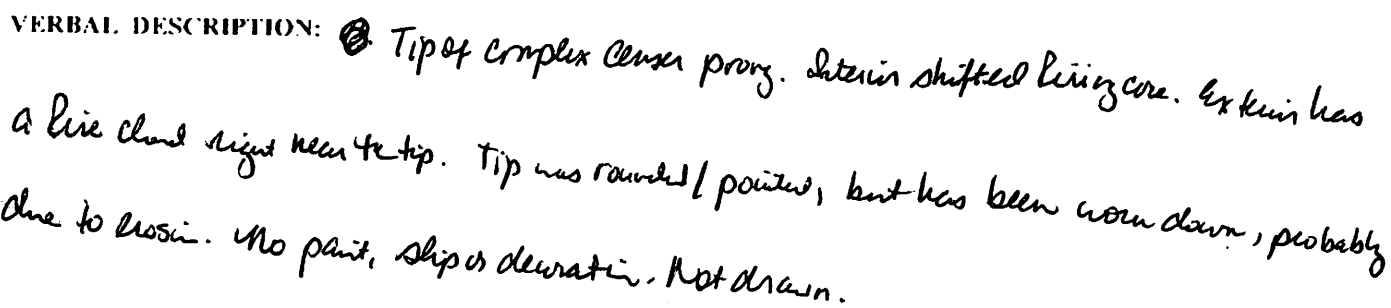 VERBAL DESCRIPTION: Tip of complex censer prong. Interior shifted firing core. Exterior has
a fire cloud right near the tip. Tip was rounded/pointed, but has been worn down, probably
due to erosion. No paint, slip or decoration. Not drawn.